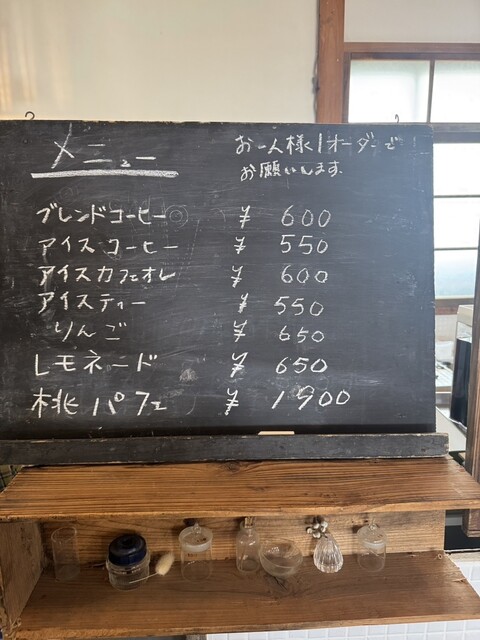 メニュー
お一人様1オーダーで
お願いします.
ブレンドコーヒー ¥ 600
アイスコーヒー ¥ 550
アイスカフェオレ ¥ 600
アイスティー ¥ 550
りんご ¥ 650
レモネード ¥ 650
桃パフェ ¥ 1900